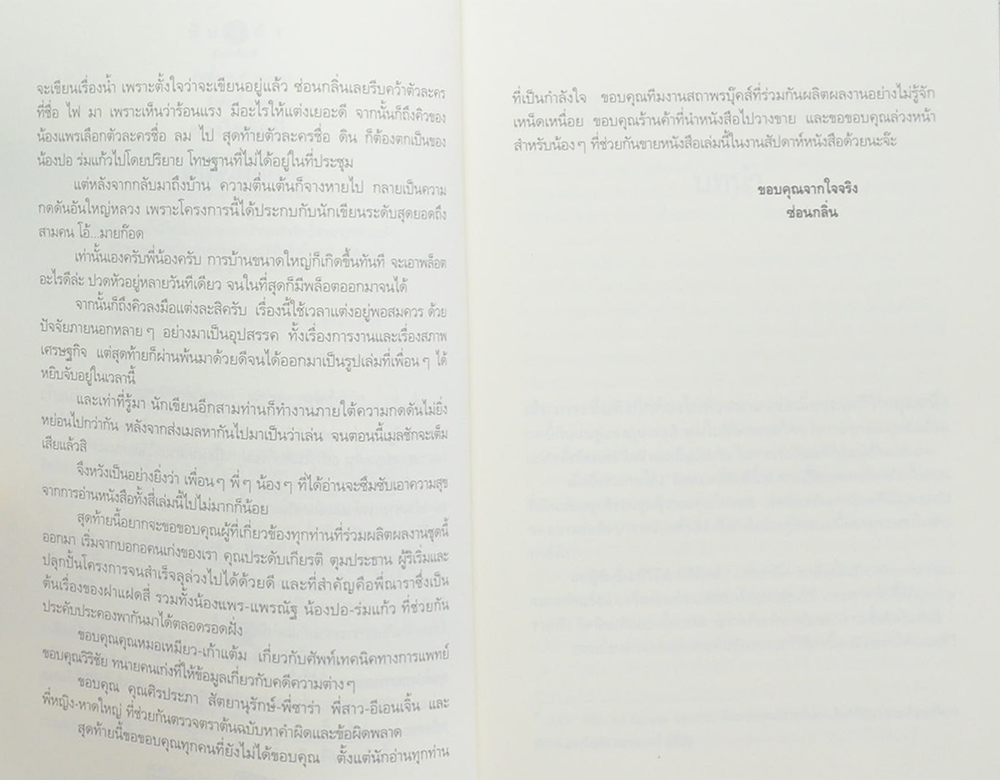 จะเขียนเรื่องน้ำ เพราะตั้งใจว่าจะเขียนอยู่แล้ว ซ่อนกลิ่นเลยรีบคว้าตัวละคร
ที่ชื่อ ไฟ มา เพราะเห็นว่าร้อนแรง มีอะไรให้แต่งเยอะดี จากนั้นก็ถึงคิวของ
น้องแพรเลือกตัวละครชื่อ ลม ไป สุดท้ายตัวละครชื่อ ดิน ก็ต้องตกเป็นของ
น้องปอ ร่มแก้วไปโดยปริยาย โทษฐานที่ไม่ได้อยู่ในที่ประชุม
แต่หลังจากกลับมาถึงบ้าน ความตื่นเต้นก็จางหายไป กลายเป็นความ
กดดันอันใหญ่หลวง เพราะโครงการนี้ได้ประกบกับนักเขียนระดับสุดยอดถึง
สามคน โอ้...มายก๊อด
เท่านั้นเองครับพี่น้องครับ การบ้านขนาดใหญ่ก็เกิดขึ้นทันที จะเอาพล็อต
อะไรดีล่ะ ปวดหัวอยู่หลายวันทีเดียว จนในที่สุดก็มีพล็อตออกมาจนได้
จากนั้นก็ถึงคิวลงมือแต่งละสิครับ เรื่องนี้ใช้เวลาแต่งอยู่พอสมควร ด้วย
ปัจจัยภายนอกหลายๆ อย่างมาเป็นอุปสรรค ทั้งเรื่องการงานและเรื่องสภาพ
เศรษฐกิจ แต่สุดท้ายก็ผ่านพ้นมาด้วยดีจนได้ออกมาเป็นรูปเล่มที่เพื่อนๆ ได้
หยิบจับอยู่ในเวลานี้
และเท่าที่รู้มา นักเขียนอีกสามท่านก็ทำงานภายใต้ความกดดันไม่ยิ่ง
หย่อนไปกว่ากัน หลังจากส่งเมลหากันไปมาเป็นว่าเล่น จนตอนนี้เมลชักจะเต็ม
เสียแล้วสิ
จึงหวังเป็นอย่างยิ่งว่า เพื่อนๆ พี่ๆ น้องๆ ที่ได้อ่านจะซึมซับเอาความสุข
จากการอ่านหนังสือทั้งสี่เล่มนี้ไปไม่มากก็น้อย
สุดท้ายนี้อยากจะขอขอบคุณผู้ที่เกี่ยวข้องทุกท่านที่ร่วมผลิตผลงานชุดนี้
ออกมา เริ่มจากบอกอคนเก่งของเรา คุณประดับเกียรติ ตุมประธาน ผู้ริเริ่มและ
ปลุกปั้นโครงการจนสำเร็จลุล่วงไปได้ด้วยดี และที่สำคัญคือพี่ณาราซึ่งเป็น
ต้นเรื่องของฝาแฝดสี่ รวมทั้งน้องแพร-แพรณัฐ น้องปอ-ร่มแก้ว ที่ช่วยกัน
ประคับประคองพากันมาได้ตลอดรอดฝั่ง
ขอบคุณคุณหมอเหมียว-เก้าแต้ม เกี่ยวกับศัพท์เทคนิคทางการแพทย์
ขอบคุณวิริชัย ทนายคนเก่งที่ให้ข้อมูลเกี่ยวกับคดีความต่างๆ
ขอบคุณ คุณศิรประภา สัตยานุรักษ์-พี่ซาร่า พี่สาว-อีเอนเจิ้น และ
พี่หญิง-หาดใหญ่ ที่ช่วยกันตรวจตราต้นฉบับหาคำผิดและข้อผิดพลาด
สุดท้ายนี้ขอขอบคุณทุกคนที่ยังไม่ได้ขอบคุณ ตั้งแต่นักอ่านทุกท่าน
ที่เป็นกำลังใจ ขอบคุณทีมงานสถาพรบุ๊คส์ที่ร่วมกันผลิตผลงานอย่างไม่รู้จัก
เหน็ดเหนื่อย ขอบคุณร้านค้าที่นำหนังสือไปวางขาย และขอขอบคุณล่วงหน้า
สำหรับน้องๆ ที่ช่วยกันขายหนังสือเล่มนี้ในงานสัปดาห์หนังสือด้วยนะจ๊ะ
ขอบคุณจากใจจริง
ซ่อนกลิ่น